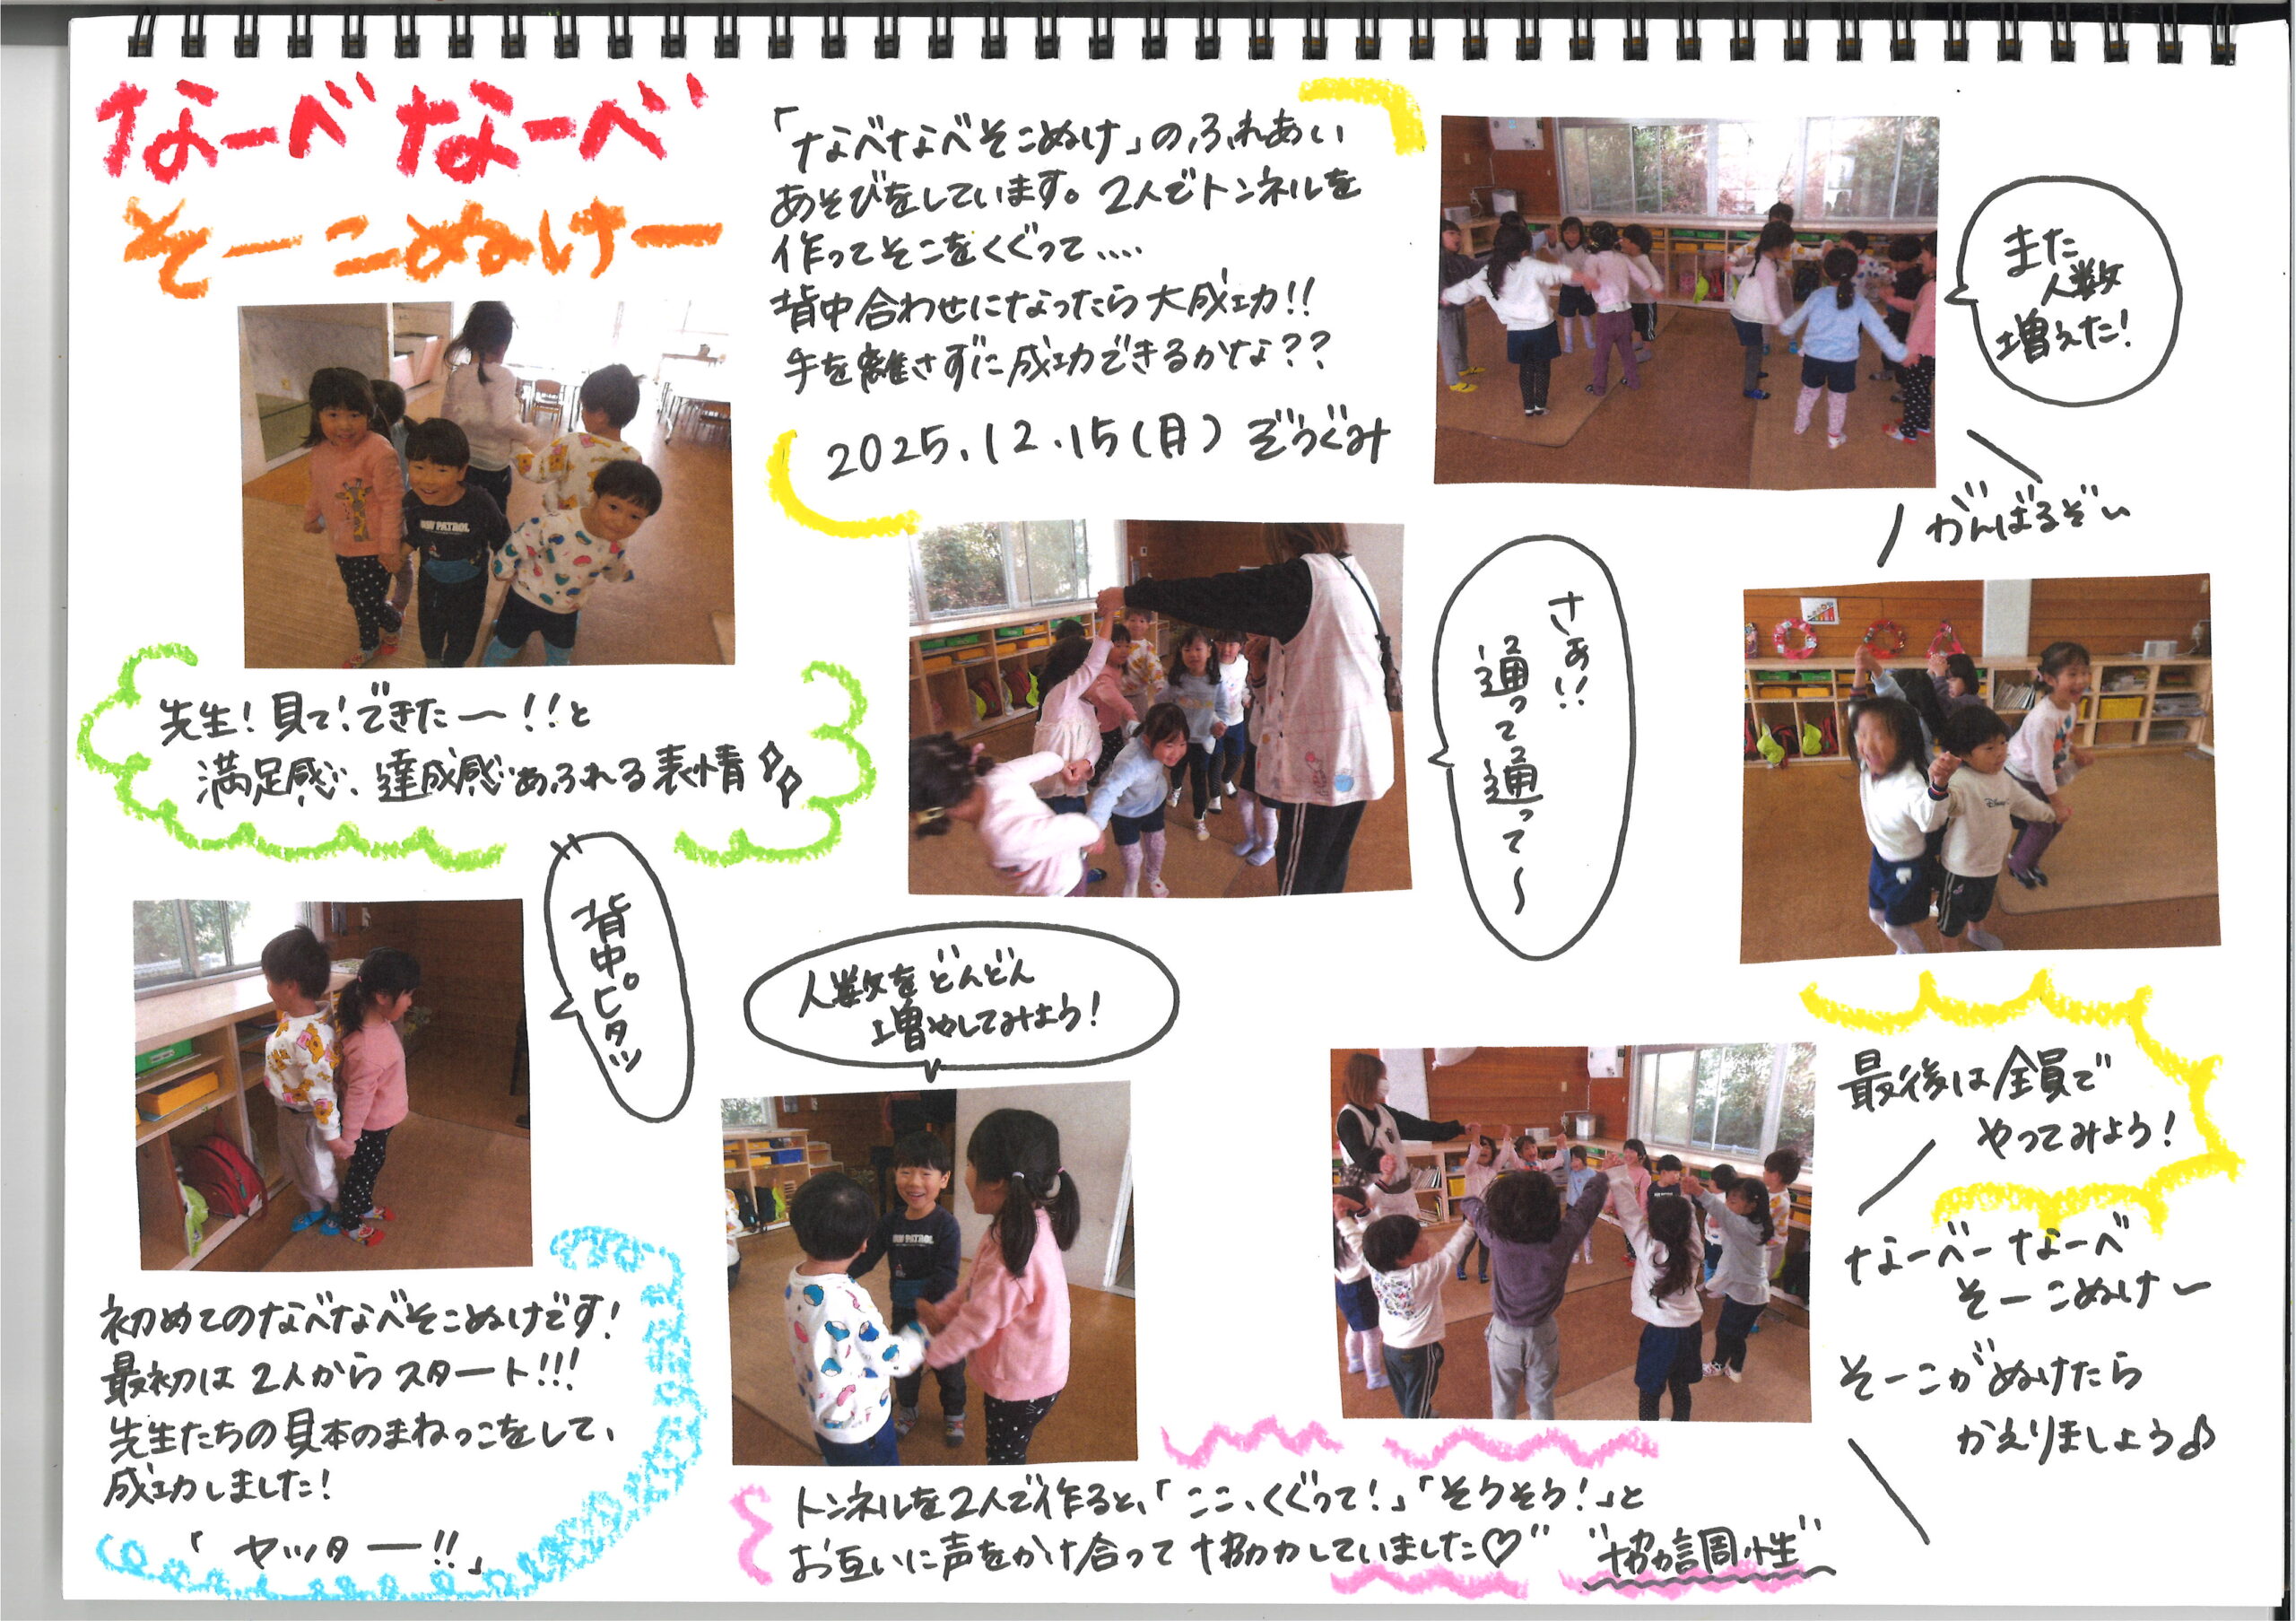 なーべなーべ
そーこぬけー
「なべなべそこぬけ」のふれあい
あそびをしています。2人でトンネルを
作ってそこをくぐって....
背中合わせになったら大成功!!
手を離さずに成功できるかな??
2025.12.15(月) ぞうぐみ
また
人数
増えた!
がんばるぞぃ
さぁ!!
通って通って〜
先生!見て!できたー!!と
満足感、達成感あふれる表情
背中ピタッ
人数をどんどん
増やしてみよう!
初めてのなべなべそこぬけです!
最初は2人からスタート!!!
先生たちの見本のまねっこをして、
成功しました!
「ヤッター!!」
最後は全員で
やってみよう!
なーべーなーべ
そーこぬけー
そーこがぬけたら
かえりましょう♪
トンネルを2人で作ると、「ここ、くぐって!」「そうそう!」と
お互いに声をかけ合って協力していました♡" "協調性"
PATROL
PATROL
Disney